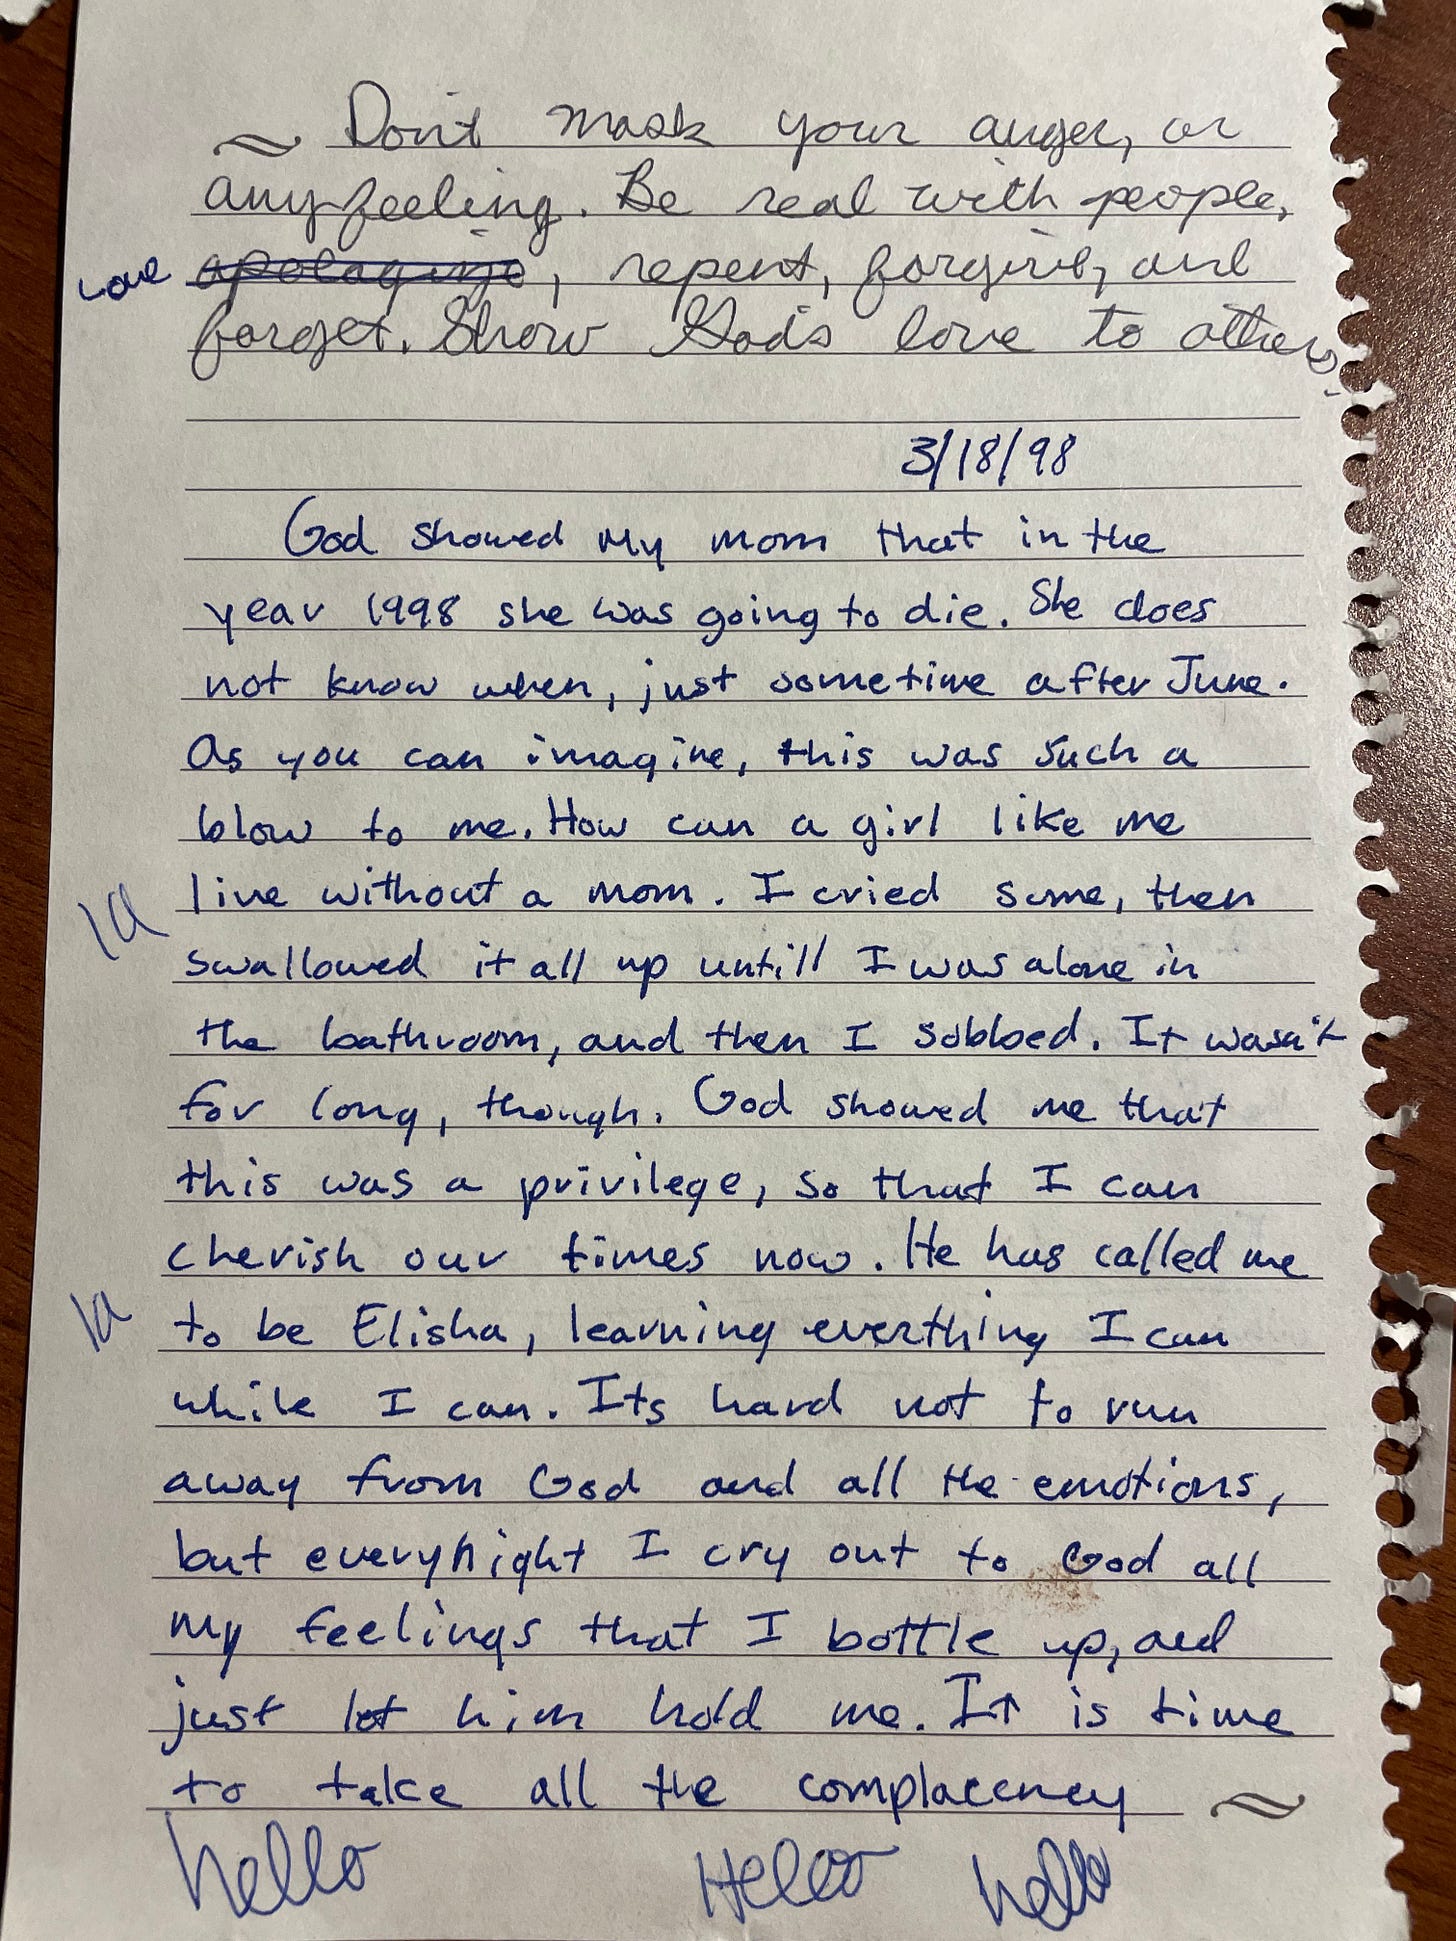 ~ Don't mask your anger, or
any feeling. Be real with people,
Love apologize, repent, forgive, and
forget. Show God's love to others.
3/18/98
God showed my mom that in the
year 1998 she was going to die. She does
not know when, just sometime after June.
As you can imagine, this was such a
blow to me. How can a girl like me
live without a mom. I cried some, then
swallowed it all up untill I was alone in
the bathroom, and then I sobbed. It wasn't
for long, though. God showed me that
this was a privilege, so that I can
cherish our times now. He has called me
to be Elisha, learning everthing I can
while I can. Its hard not to run
away from God and all the emotions,
but everynight I cry out to God all
my feelings that I bottle up, and
just let him hold me. It is time
to take all the complacency ~
hello Hello hello